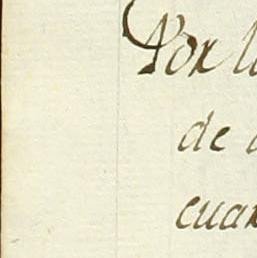 Por l
de
cuan